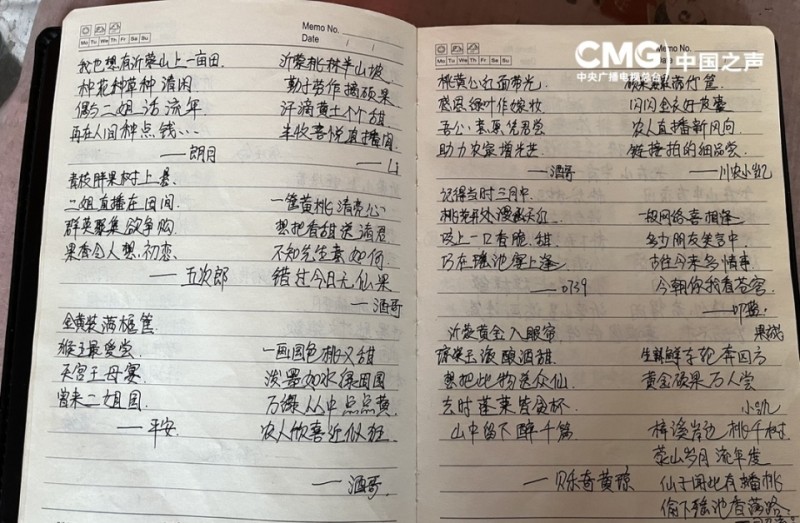 Memo No.
Date
Mo Tu We Th Fr Sa Su
我也想有沂蒙山上一亩田
种花种草种清闲
偶与二姐话流年
再在人间种点钱…
——朗月
沂蒙桃林半山坡
勤于劳作摘硕果
汗滴黄土个个甜
丰收喜悦直播间
青枝胖果树上悬
二姐直播在田间
群英聚集欲争购
果香令人想初恋
——五次郎
一筐黄桃清亮心
想把香甜送诸君
不知先生意如何
错过今日无仙果
——酒哥
金黄装满筐
猴王最爱尝
天宫王母宴
曾来二姐园
——平安
一画园色桃又甜
泼墨如水绿田园
万绿丛中点点黄
农人欣喜近似狂
——酒哥
CMG 中国之声
中央广播电视总台
Memo No.
Mo Tu We Th Fr Sa Su
桃黄公红面带光
感恩绿叶作嫁妆
助力农家增光芒
——酒哥
闪闪金衣好黄裳
农人直播新风向
链接拍的细品尝
——川农小凯
记得当时三月中
桃花开处漫天红
咬上一口香脆甜
巧在瑶池宴上逢
——0739
一根网络喜相逢
多少朋友笑言中
古往今来多情事
今朝你我看苍穹
沂蒙黄金入眼帘
琼浆玉液酿酒甜
想把此物送众仙
去时蓬莱皆贪杯
山中留下醉千篇
——贝乐奇黄琼
果绒
生鲜鲜车轮奔四方
黄金硕果万人尝
小凯
梓溪岸边桃千树
蒙山岁月流年度
仙子闻此有播桃
偷下瑶池香落路